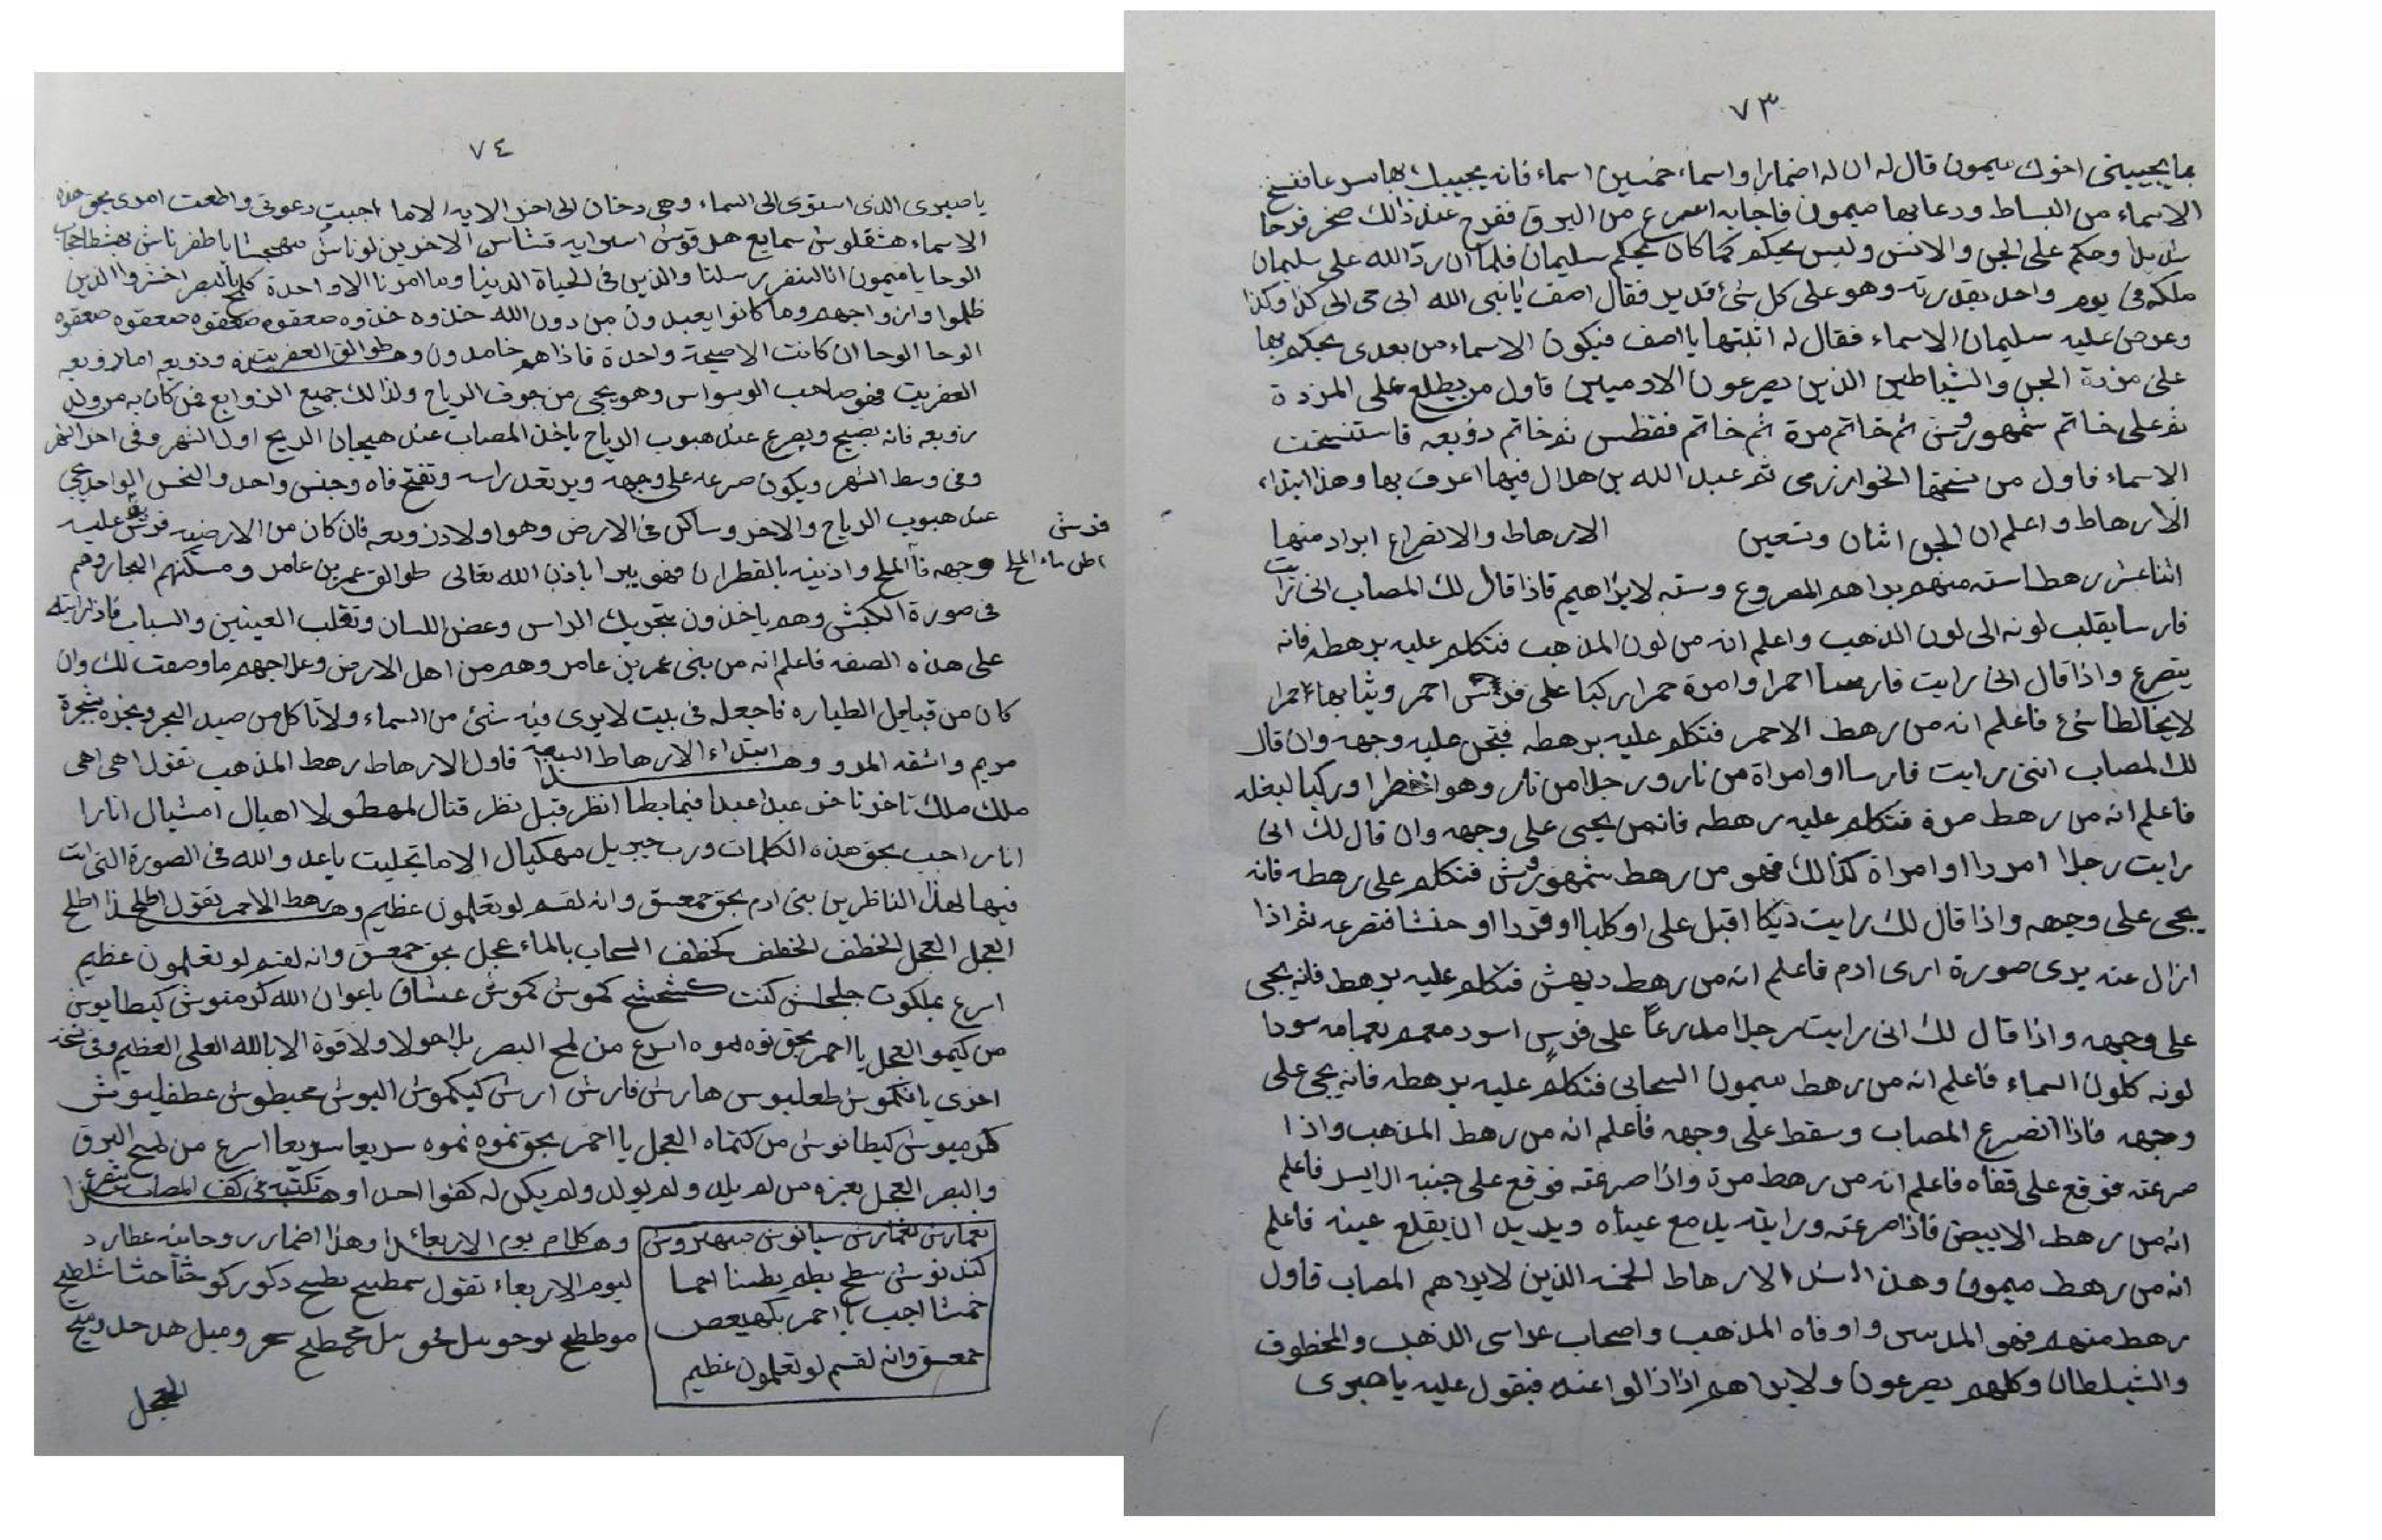 ٧٣
بما يجيبني اخوك ميمون قال له ان له اضمارا واسماء خمسين اسماء فانه يجيبك بها سرعا ففتح
الاسماء من البساط ودعا بها ميمون فاجابه اسرع من البرق ففرح عند ذالك صخر فرحا
شديدا وحكم على الجن والانس وليس يحكم كما كان يحكم سليمان فلما ان ردّ الله على سليمان
ملكه في يوم واحد بقدرته وهو على كل شئ قدير فقال اصف يا نبى الله اني حى الى كذا وكذا
وعرض عليه سليمان الاسماء فقال له اثبتها يا اصف فيكون الاسماء من بعدى يحكم بها
على مردة الجن والشياطين الذين يصرعون الادميين فاول من يطلع على المردة
ثم على خاتم شمهورش ثم خاتم مرة ثم خاتم فقطس ثم خاتم زوبعه فاستنسخت
الاسماء فاول من نسخها الخوارزمى ثم عبد الله بن هلال فيها اعرف بها وهذا ابتداء
الارهاط واعلم ان الجن اثنان وتسعين الارهاط والانصراع ابراد منها
اثنا عشر رهطا سته منهم يراهم المصروع وسته لا يراهم فاذا قال لك المصاب انى رايت
فارسا يقلب لونه الى لون الذهب واعلم انه من لون المذهب فتكلم عليه برهطه فانه
ينصرع واذا قال انى رايت فارسا احمرا وامرة حمرا ركبا على فرس احمر وثيابها احمرا
لا يخالطا شئ فاعلم انه من رهط الاحمر فتكلم عليه برهطه فتجى عليه وجهه وان قال
لك المصاب اننى رايت فارسا او امراة من نار ورجلا من نار وهو اخطرا وركبا لبغله
فاعلم انه من رهط مرة فتكلم عليه رهطه فانه يجى على وجهه وان قال لك انى
رايت رجلا امردا او امراة كذالك فهو من رهط شمهورش فتكلم على رهطه فانه
يجى على وجهه واذا قال لك رايت ديكا اقبل على او كلبا او قردا او حنشا فتصرعه ثم اذا
ازال عنه يرى صورة ارى ادم فاعلم انه من رهط دهنش فتكلم عليه برهط فانه يجى
على وجهه واذا قال لك انى رايت رجلا مدرعاً على فرس اسود معمم بعمامه سودا
لونه كلون السماء فاعلم انه من رهط ميمون السحابى فتكلم عليه برهطه فانه يجى على
وجهه فاذا انصرع المصاب وسقط على وجهه فاعلم انه من رهط المذهب واذا
صرعته فوقع على قفاه فاعلم انه من رهط مرة واذا صرعته فوقع على جنبه الايسر فاعلم
انه من رهط الابيض فاذا صرعته ورايته يدمع عيناه ويريد ان يقلع عينه فاعلم
انه من رهط ميمون وهذا الارهاط الخمسه الذين لا يراهم المصاب فاول
رهط منهم فهو المدبس واوفاه المذهب واصحاب عراسى الذهب والمخطوف
والشيلطان وكلهم يصرعون ولا يراهم اذا زالوا عنه فيقول عليه يا صبرى
٧٤
يا صبرى الذى استوى الى السماء وهى دخان الى اخر الايه الا ما اجبت دعوتى واطعت امرى بحق هذه
الاسماء هشقلوش سمايع هد قوش اسرايه قشاس الاخرين لوناش
الوحا يا ميمون انا لننصر رسلنا والذين فى الحياة الدنيا وما امرنا الا واحدة كلمح بالبصر احشروا الذين
ظلموا وازواجهم وما كانوا يعبدون من دون الله خذوه خذوه صعقوه صعقوه صعقوه صعقوه
الوحا الوحا ان كانت الا صيحة واحدة فاذا هم خامدون وهذا طوالق العفريت وزوبعه اما زوبعه
العفريت فهو صاحب الوسواس وهو يجى من جوف الرياح ولذالك جميع الزوابع فمن كان به مر ولد
زوبعه فانه يصيح ويصرع عند هبوب الرياح ياخذ المصاب عند هيجان الريح اول الشهر وفى اخر الشهر
وفى وسط الشهر ويكون صرعه على وجهه ويرتعد راسه وتفتح فاه وجنس واحد والنحس الواحد يجى
عند هبوب الرياح والاخر وساكن فى الارض وهو اولاد زوبعه فان كان من الارضيه فرش عليه
فرش
اطن ماء الملح
وجهه فآ الملح واذنيه بالقطران فهو يبرا باذن الله تعالى طوالق عمر بن عامر ومسكنهم البحار وهم
فى صورة الكبش وهم ياخذون بتحريك الراس وعض اللسان وتقلب العينين والسباب فاذا رايته
على هذه الصفه فاعلم انه من بنى عمر بن عامر وهم من اهل الارض وعلاجهم ما وصفت لك وان
كان من قبايل الطياره فاجعله فى بيت لا يرى فيه شئ من السماء ولا تاكل من صيد البحر وبخره بشجرة
مريم واشقه المرو وهذا ابتداء الارهاط السبعه فاول الارهاط رهط المذهب تقول اهى اهى
ملك ملك تاخر ناخر عبدا عبدا فيما بطا انظر قبل نظر قتال لمهطولا اهيال امشيال انارا
انار اجب بحق هذه الكلمات ورب جبريل مهكيال الا ما تجليت يا عبد والله فى الصورة التى انت
فيها لهذا الناظرين بنى ادم بحق حمعسق وانه لقسم لو تعلمون عظيم وهذا رهط الاحمر تقول اطلح اطلح
العجل العجل الخطف الخطف كخطف السحاب بالماء عجل بحق حمعسق وانه لقسم لو تعلمون عظيم
اسرع بملكوت جلجلش كنت كشخشخ كموش كموش عشاق يا عوان الله كرمنوش كيطايوش
من كيمو العجل يا احمر بحق نوه نموه اسرع من لمح البصر بلا حولا ولا قوة الا بالله العلى العظيم وفى نسخه
اخرى يا نكموش طعليوس هارس فارش ارش كيكموش اليوش محيطوش عطفليوش
كلرميوش كيطانوش من كتماه العجل يا احمر بحق نموه نموه سريعا سريعا اسرع من لمح البرق
والبصر العجل بعزة من لم يلد ولم يولد ولم يكن له كفوا احد وهذا تكتبه فى كف المصاب ينصرع
نعمارش نعمارش سيانوش مهروش
كند نوش سطح يطير بطسنا احما
خمشا اجب يا احمر بكهيعص
حمعسق وانه لقسم لو تعلمون عظيم
وهذا كلام يوم الاربعاء وهذا اضمار روحانيه عطارد
ليوم الاربعاء تقول سمطيح بطيح دكور كو حثا حثا شلطيح
موطظح
العجل